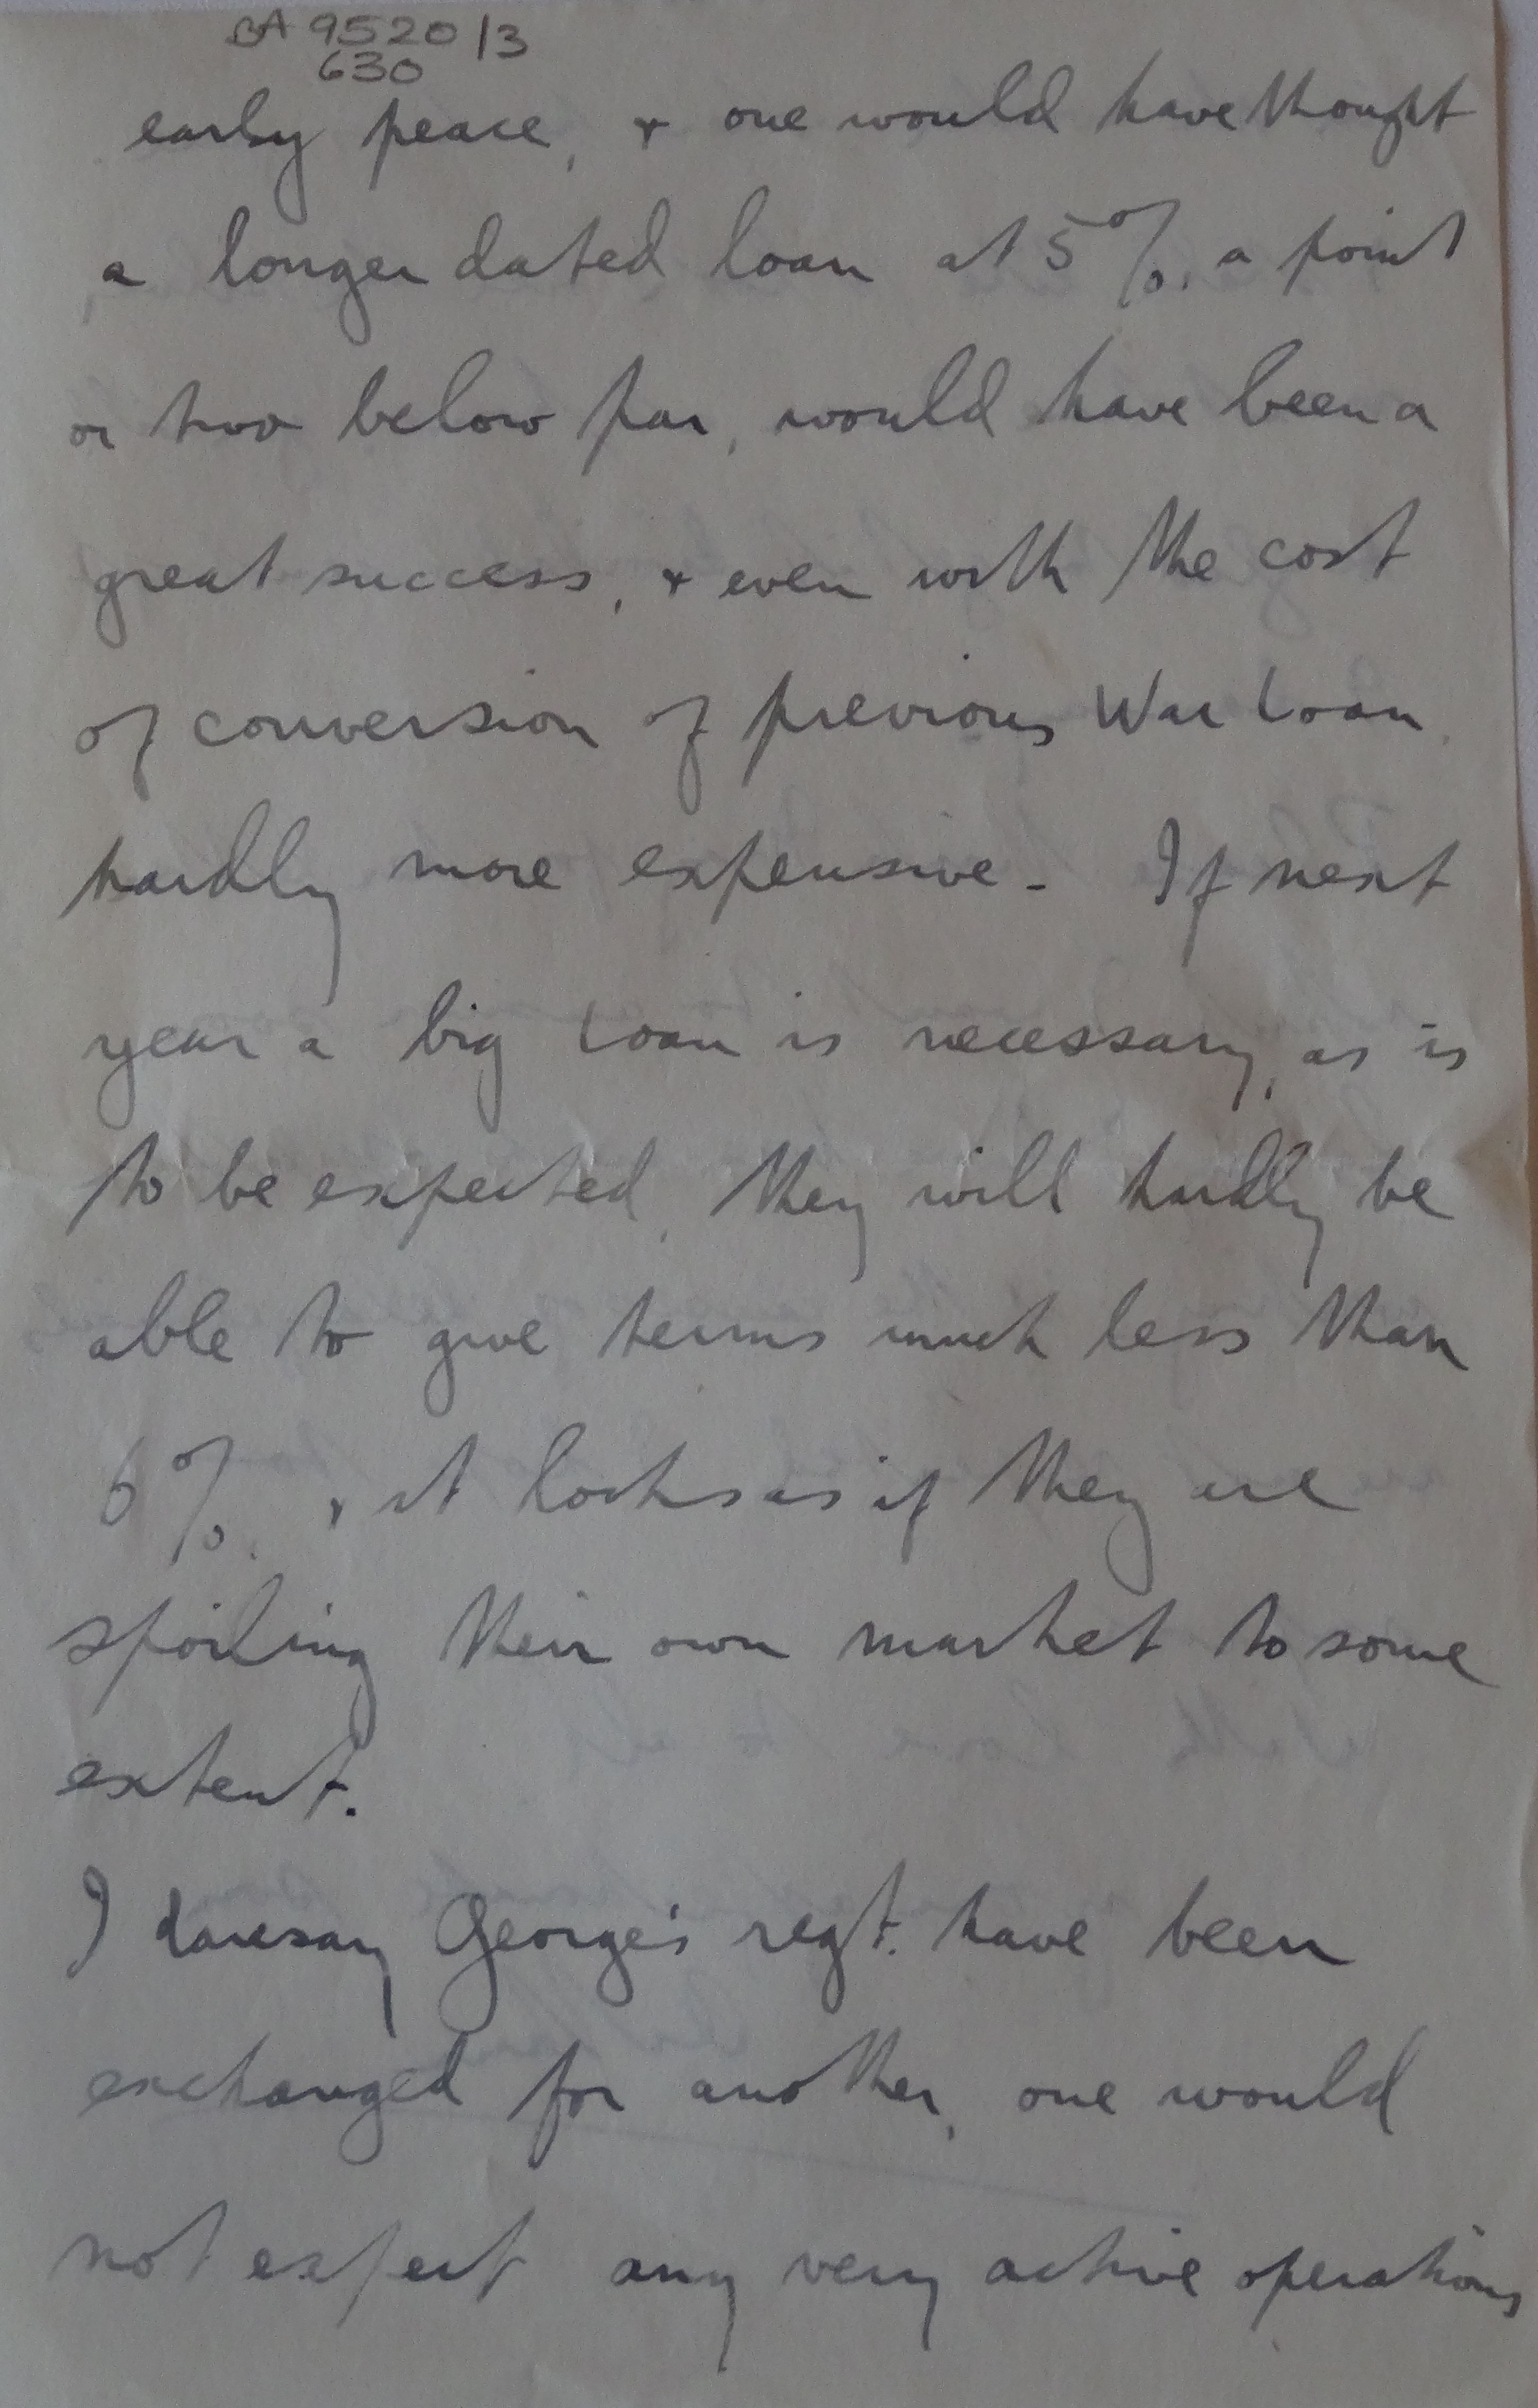 BA 9520/3
630
early peace, & one would have thought
a longer dated loan at 5%, a point
or two below par, would have been a
great success, & even with the cost
of conversion of previous War Loan
hardly more expensive. If next
year a big Loan is necessary, as is
to be expected, they will hardly be
able to give terms much less than
6%. & it looks as if they are
spoiling their own market to some
extent.
I daresay George's regt. have been
exchanged for another, one would
not expect any very active operations